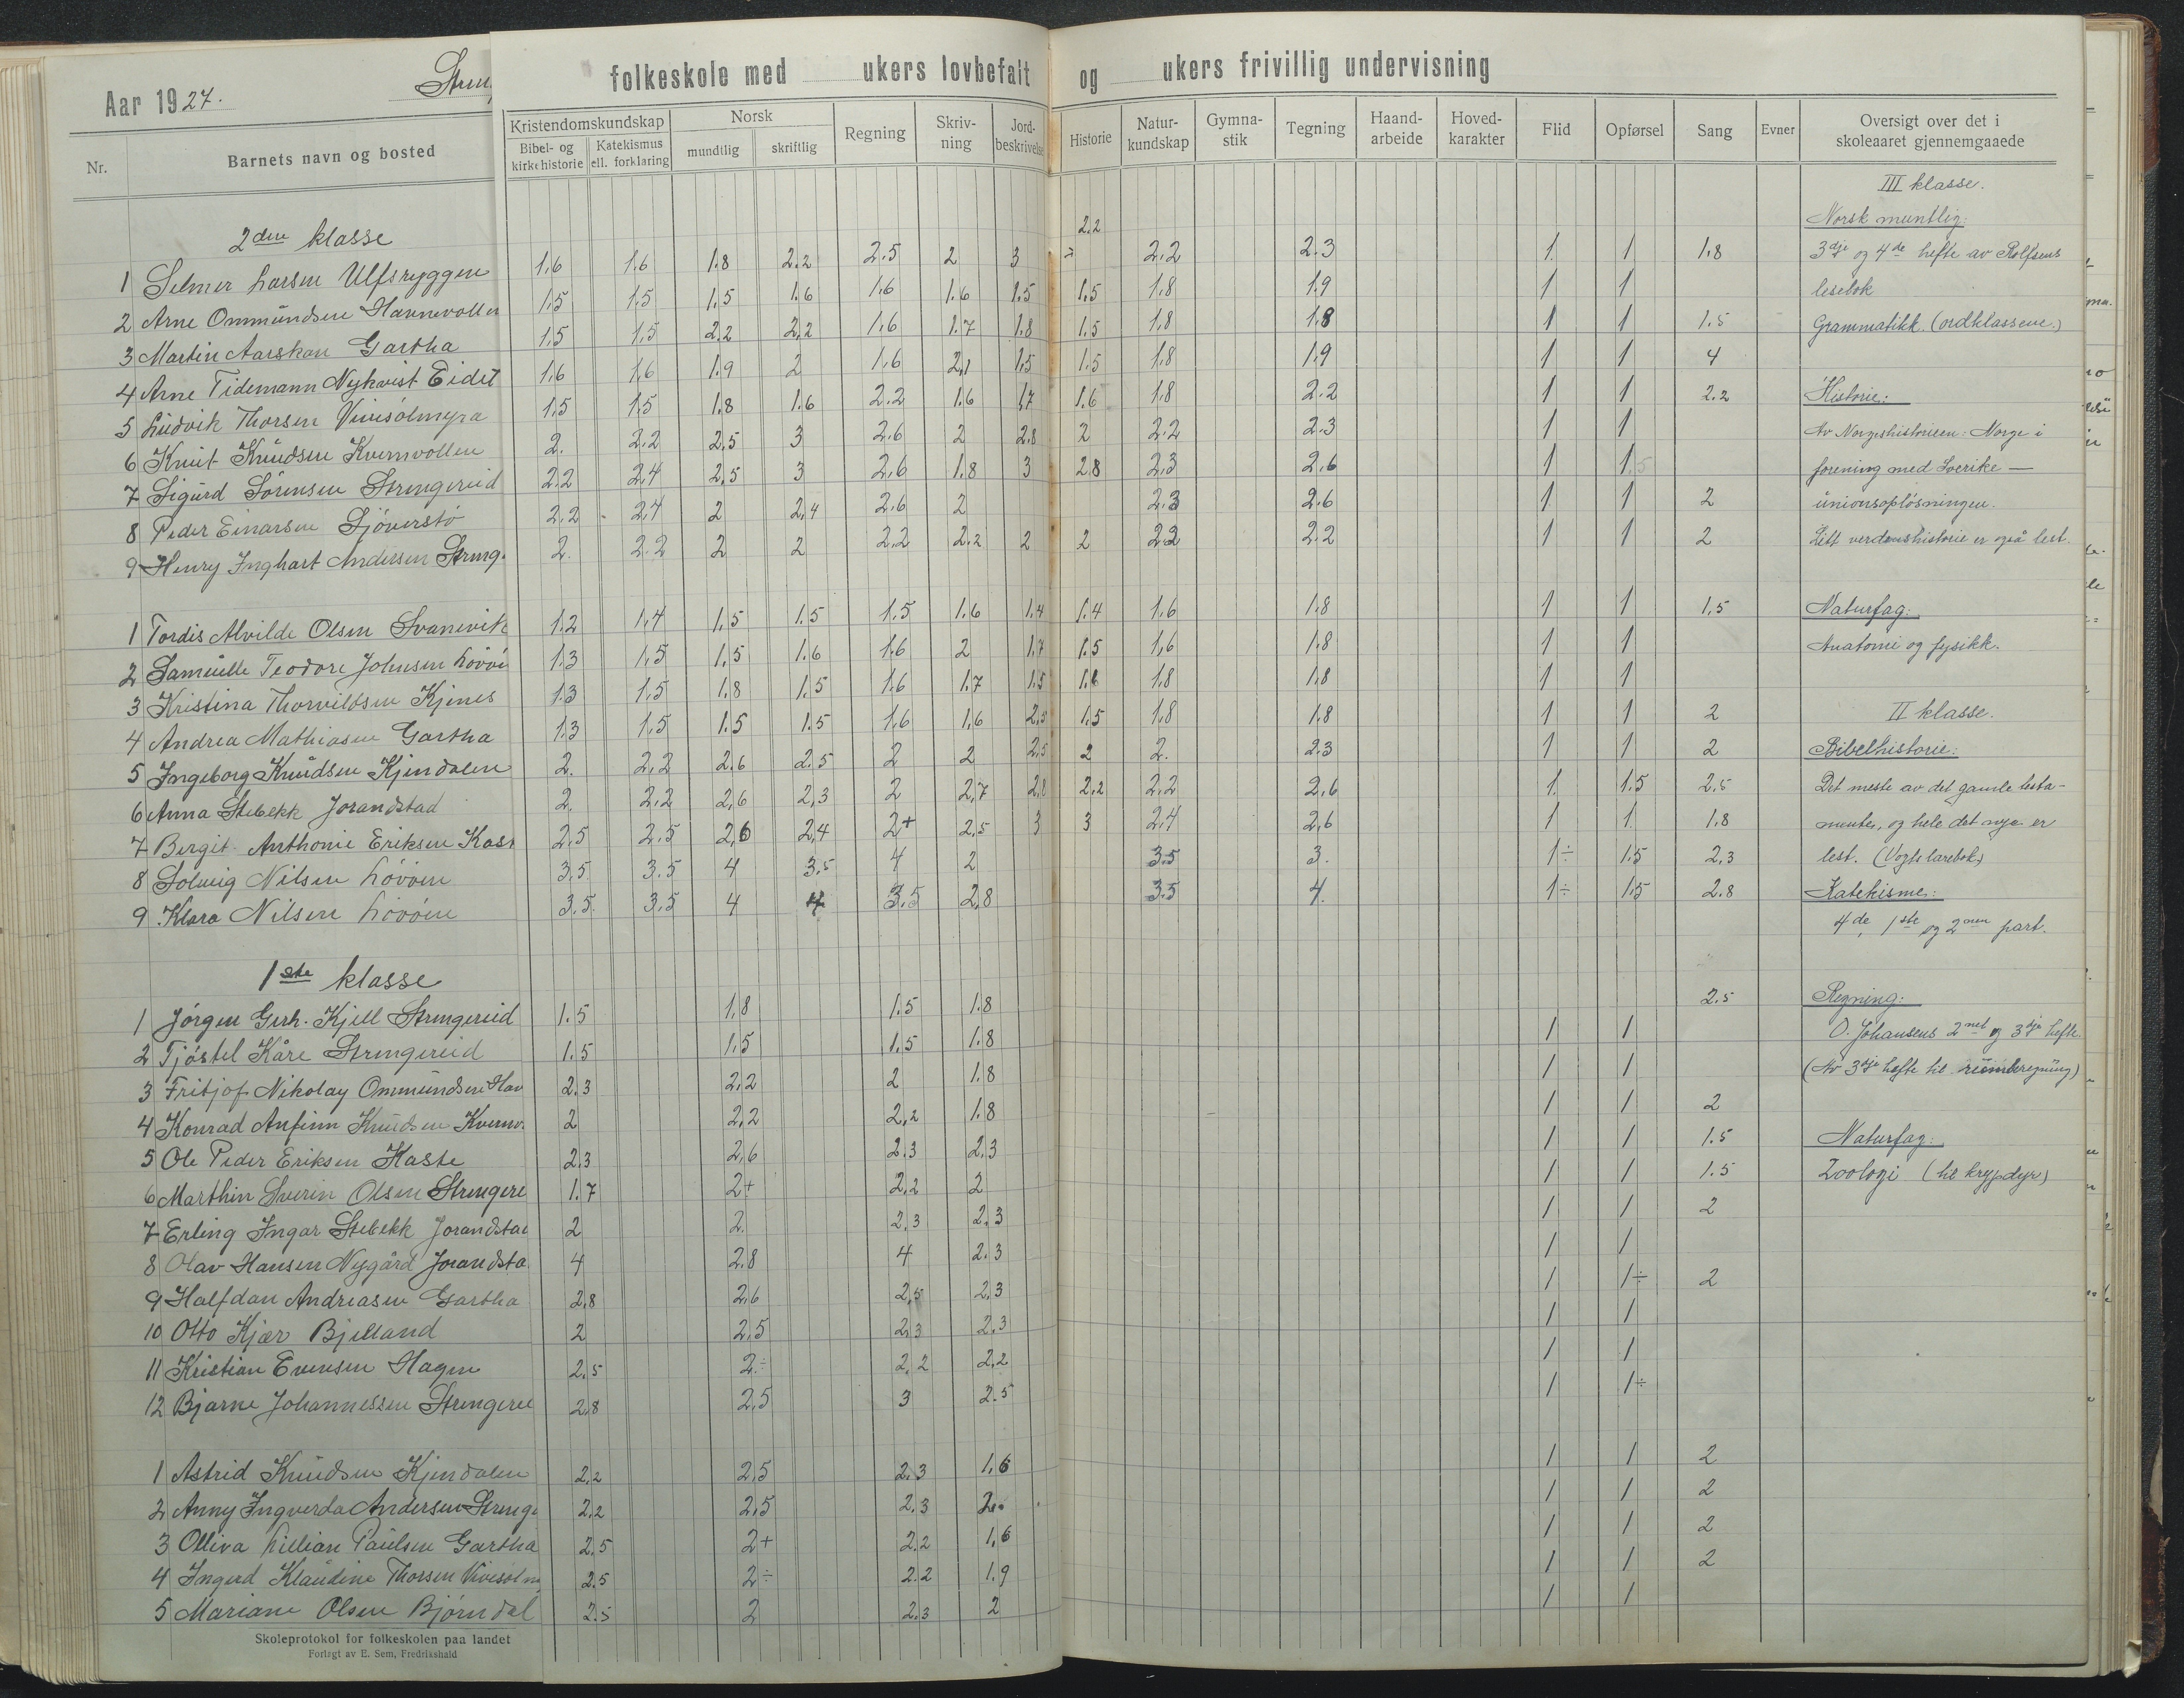 Aar 1927.
folkeskole med ukers lovbefalt og ukers frivillig undervisning
Nr. Barnets navn og bosted Kristendomskundskap Bibel- og kirkehistorie Katekismus ell. forklaring Norsk mundtlig skriftlig Regning Skrivning Jordbeskrivelse Historie Naturkundskap Gymnastik Tegning Haandarbeide Hovedkarakter Flid Opførsel Sang Evner Oversigt over det i skoleaaret gjennemgaaede
III klasse.
2.2 Norsk muntlig:
2den klasse
1 Selmer Larsen Ulfsryggen 1.6 1.6 1.8 2.2 2.5 2 3 2.2 2.3 1 1 1.8 3dje og 4de hefte av Rolfsens
2 Arne Ommundsen Hannevollen 1.5 1.5 1.5 1.6 1.6 1.6 1.5 1.5 1.8 1.9 1 1 lesebok
3 Martin Aarskau Gartha 1.5 1.5 2.2 2.2 1.6 1.7 1.8 1.5 1.8 1.8 1 1 1.5 Grammatikk. (ordklassene.)
4 Arne Tidemann Nykvist Eidet 1.6 1.6 1.9 2 1.6 2.1 1.5 1.5 1.8 1.9 1 1 4
5 Ludvik Thorsen Vivesølmyra 1.5 1.5 1.8 1.6 2.2 1.6 1.7 1.6 1.8 2.2 1 1 2.2 Historie:
6 Knut Knudsen Kvernvollen 2. 2.2 2.5 3 2.6 2 2.8 2 2.2 2.3 1 1 Av Norgeshistorien: Norge i
7 Sigurd Sørensen Strengereid 2.2 2.4 2.5 3 2.6 1.8 3 2.8 2.3 2.6 1 1.5 forening med Sverike —
8 Peder Einarsen Sjøverstø 2.2 2.4 2 2.4 2.6 2 2.3 2.6 1 1 2 unionsopløsningen.
9 Henry Inghart Andersen Streng. 2. 2.2 2 2 2.2 2.2 2 2 2.2 2.2 1 1 2 Litt verdenshistorie er også lest.
1 Tordis Alvilde Olsen Svanevik 1.2 1.4 1.5 1.5 1.5 1.6 1.4 1.4 1.6 1.8 1 1 1.5 Naturfag:
2 Samuelle Teodore Johnsen Løvøen 1.3 1.5 1.5 1.6 1.6 2 1.7 1.5 1.6 1.8 1 1 Anatomi og fysikk.
3 Kristina Thorvildsen Kjenes 1.3 1.5 1.8 1.5 1.6 1.7 1.5 1.6 1.8 1.8 1 1
4 Andrea Mathiasen Gartha 1.3 1.5 1.5 1.5 1.6 1.6 2.5 1.5 1.8 1.8 1 1 2 II klasse.
5 Ingeborg Knudsen Kjendalen 2. 2.2 2.6 2.5 2 2 2.5 2 2. 2.3 1 1 2 Bibelhistorie:
6 Anna Stebekk Jorandstad 2. 2.2 2.6 2.3 2 2.7 2.8 2.2 2.2 2.6 1. 1.5 2.5 Det meste av det gamle testa-
7 Bergit Anthonie Eriksen Kast 2.5 2.5 2.6 2.4 2+ 2.5 3 3 2.4 2.6 1 1 1.8 mente, og hele det nye er
8 Solveig Nilsen Løvøen 3.5 3.5 4 3.5 4 2 3.5 3. 1÷ 1.5 2.3 lest. (Vogts lærebok)
9 Klara Nilsen Løvøen 3.5. 3.5 4 4 3.5 2.8 3.5 4. 1÷ 1.5 2.8 Katekisme:
4de, 1ste og 2nen part.
1ste klasse
1 Jørgen Gerh. Kjell Strengereid 1.5 1.8 1.5 1.8 2.5 Regning:
2 Tjøstel Kåre Strengereid 1.5 1.5 1.5 1.8 1 1 O. Johansens 2net og 3dje hefte.
3 Fritjof Nikolay Ommundsen Hav 2.3 2.2 2 1.8 1 1 (Av 3dje hefte til rumberegning)
4 Konrad Anfinn Knudsen Kvernv. 2 2.2 2.2 1.8 1 1 2
5 Ole Peder Eriksen Kaste 2.3 2.6 2.3 2.3 1 1 1.5 Naturfag:
6 Marthin Sverin Olsen Strengere 1.7 2+ 2.2 2 1 1 1.5 Zoologi (til krypdyr)
7 Erling Ingar Stebekk Jorandstad 2 2. 2.3 2.3 1 1 2
8 Olav Hansen Nygård Jorandsta 4 2.8 4 2.3 1 1
9 Halfdan Andreasen Gartha 2.8 2.6 2.5 2.3 1 1÷ 2
10 Otto Kjær Bjelland 2 2.5 2.3 2.3 1 1
11 Kristian Evensen Hagen 2.5 2÷ 2.2 2.2 1 1
12 Bjarne Johannessen Strengerei 2.8 2.5 3 2.5 1 1÷
1 Astrid Knudsen Kjendalen 2.2 2.5 2.3 1.6 1 1 2
2 Anny Ingverda Andersen Strenge 2.2 2.5 2.3 2 1 1 2
3 Olliva Lillian Paulsen Gartha 2.5 2+ 2.2 1.6 1 1 2
4 Ingerd Klaudine Thorsen Vivesølm 2.5 2÷ 2.2 1.9 1 1 2
5 Mariane Olsen Bjørndal 2.5 2 2.3 2 1 1
Skoleprotokol for folkeskolen paa landet
Forlagt av E. Sem, Fredrikshald